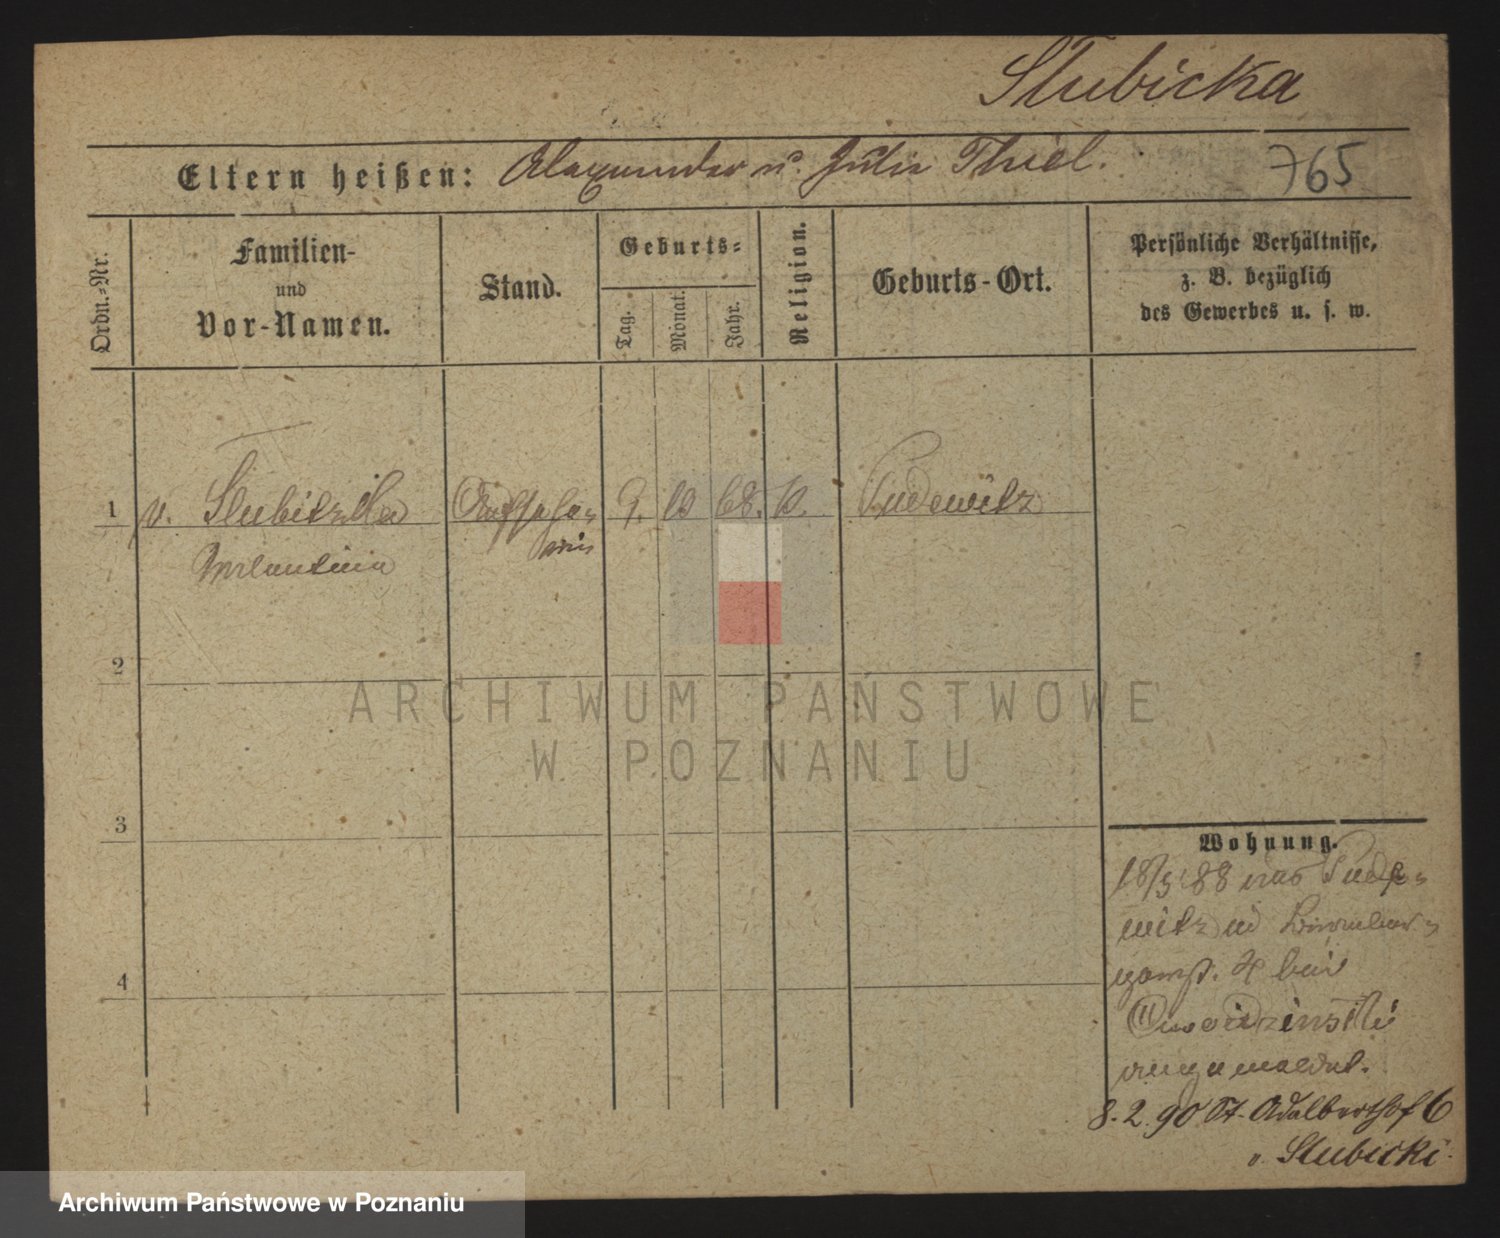 Slubicka
Eltern heißen: Alexander u. Julie Thiel.
765
Ordn.-Nr.
Familien-
und
Vor-Namen.
Stand.
Geburts-
Tag.
Monat.
Jahr.
Religion.
Geburts-Ort.
Persönliche Verhältnisse,
z. B. bezüglich
des Gewerbes u. s. w.
1 v. Slubitzka 9. 10 68. K. Pudewitz
2
3
4
Wohnung.
18/5 88 aus Pude-
witz
4 bei
angemeldet.
8.2.90 St. Adalberthof 6
v. Slubicki.
ARCHIWUM PAŃSTWOWE
W POZNANIU
Archiwum Państwowe w Poznaniu